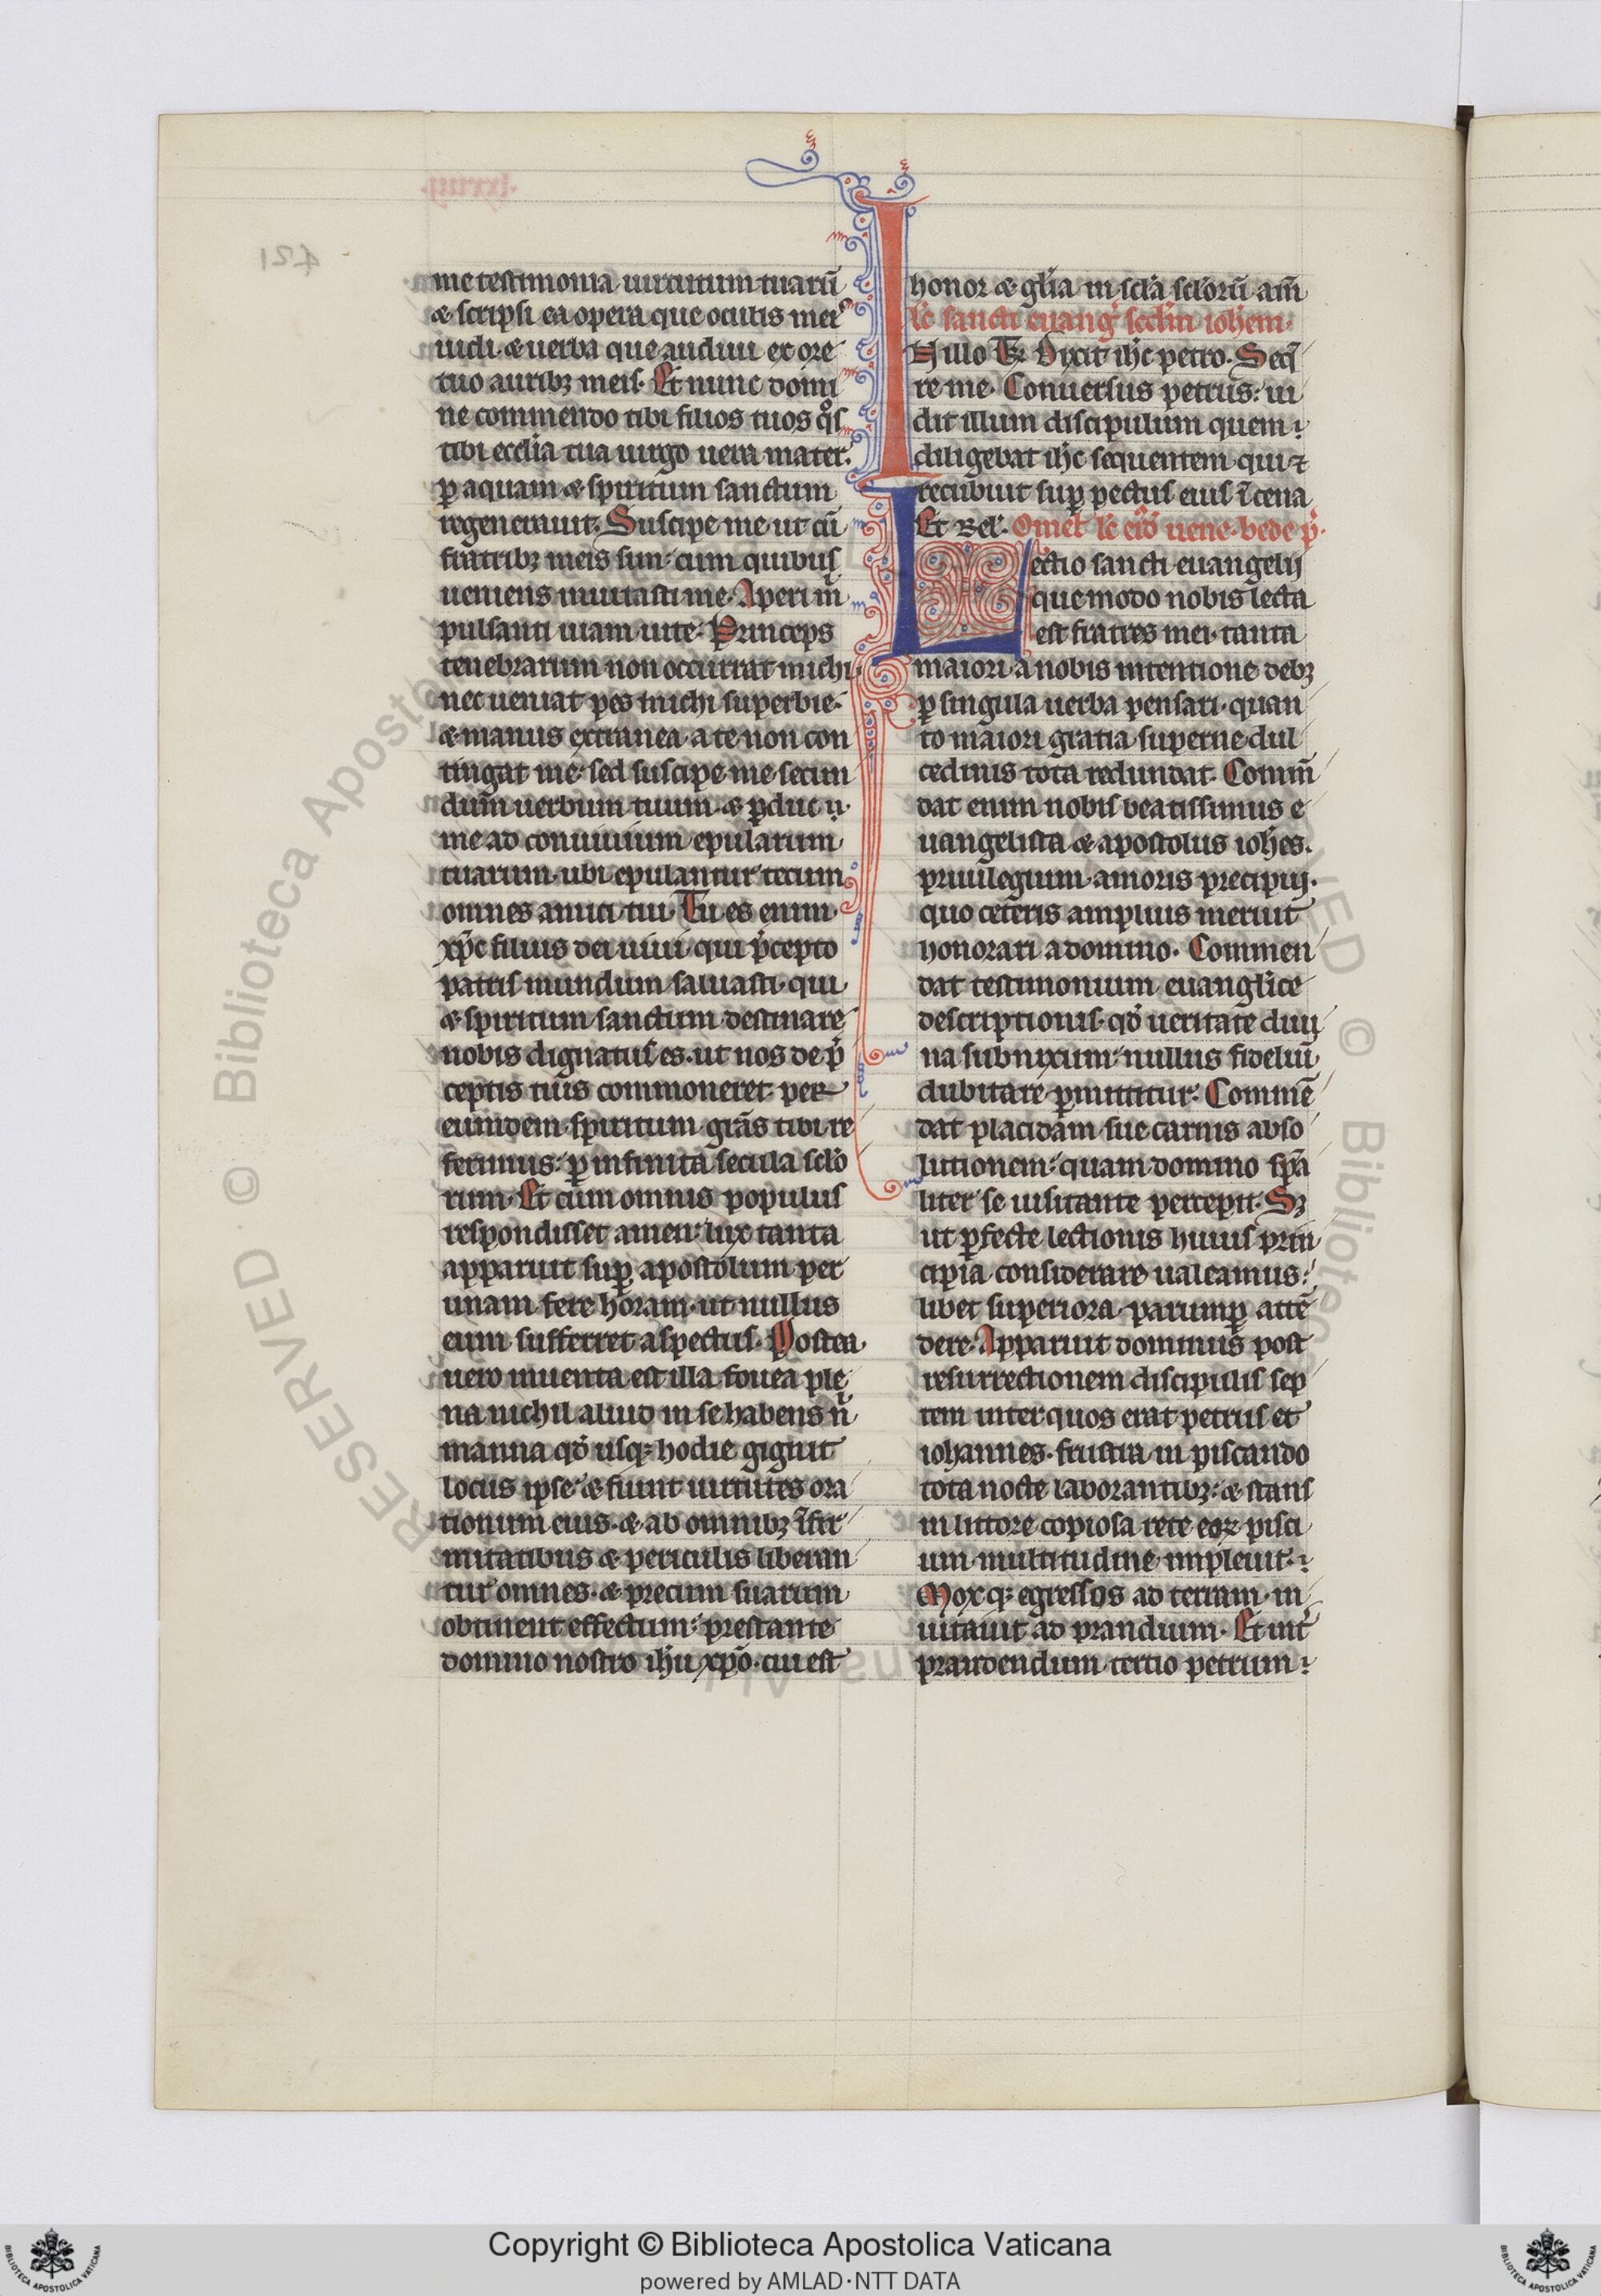 me testimonia uirtutum tuarū
⁊ scripsi ea opera que oculis meis
uidi. ⁊ uerba que audiui ex ore
tuo auribꝫ meis. Et nunc domi
ne commendo tibi filios tuos qͦs
tibi ecclīa tua uirgo uera mater.
ꝑ aquam ⁊ spiritum sanctum
regenerauit. Suscipe me ut cū
fratribꝫ meis sim. cum quibus
ueniens inuitasti me. Aperi m̄
pulsanti uiam uite. Princeps
tenebrarum non occurrat michi.
nec ueniat pes michi superbie.
⁊ manus extranea a te non con
tingat me. sed suscipe me secun
dum uerbum tuum. ⁊ ꝑduc
me ad conuiuium epularum
tuarum. ubi epulantur tecum
omnes amici tui. Tu es enim
xp̄c filius dei uiui. qui p̄cepto
patris mundum saluasti. qui
⁊ spiritum sanctum destinare
nobis dignatus es. ut nos de p̄
ceptis tuis commoneret. per
eumdem spiritum grās tibi re
ferimus. ꝑ infinita secula sclo
rum. Et cum omnis populus
respondisset amen. lux tanta
apparuit suꝑ apostolum per
unam fere horam. ut nullus
eum sufferret aspectus. Postea
uero inuenta est illa fouea ple
na nichil aliud in se habens n̄
manna qđ usqꝫ hodie gignit
locus ipse. ⁊ fiunt uirtutes ora
tionum eius. ⁊ ab omnibꝫ īfir
mitatibus ⁊ periculis liberan
tur omnes. ⁊ precum suarum
obtinent effectum. prestante
domino nostro ihū xp̄o. cui est
honor ⁊ glīa in sclā sclōrū am̄
Lc̄ sancti euanḡ scd̄m ioh̄em.
IN illo Tꝛ̄ Dixit ih̄c petro. Seq̄
re me. Conuersus petrus. ui
dit illum discipulum quem
diligebat ih̄c sequentem qui ⁊
recubuit suꝑ pectus eius ī cena
Et Rel. Omel̄ lc̄ eiꝰđ uene. bede p̄.
Lectio sancti euangelii
que modo nobis lecta
est fratres mei. tanta
maiori a nobis intentione debꝫ
ꝑ singula uerba pensari. quan
to maiori gratia superne dul
cedinis tota redundat. Comm̄
dat enim nobis beatissimus e
uangelista ⁊ apostolus ioh̄es.
priuilegium amoris precipui.
quo ceteris amplius meruit
honorari a domino. Commen
dat testimonium euanglīce
descriptionis. qđ ueritate diui
na subnixum. nullus fideliū
dubitare ꝑmittitur. Commē
dat placidam sue carnis abso
lutionem. quam domino sp̄a
liter se uisitante percepit. Sꝫ
ut ꝑfecte lectionis huius prin
cipia considerare ualeamus.
libet superiora parumꝑ attē
dere. Apparuit dominus post
resurrectionem discipulis sep
tem inter quos erat petrus et
iohannes. frustra in piscando
tota nocte laborantibꝫ. ⁊ stans
in littore copiosa rete eoꝝ pisci
um multitudine impleuit.
Moxqꝫ egressos ad terram. in
uitauit ad prandium. Et int̄
prandendum tertio petrum
RESERVED © Biblioteca Aposto
© Biblioteca
Copyright © Biblioteca Apostolica Vaticana
powered by AMLAD·NTT DATA